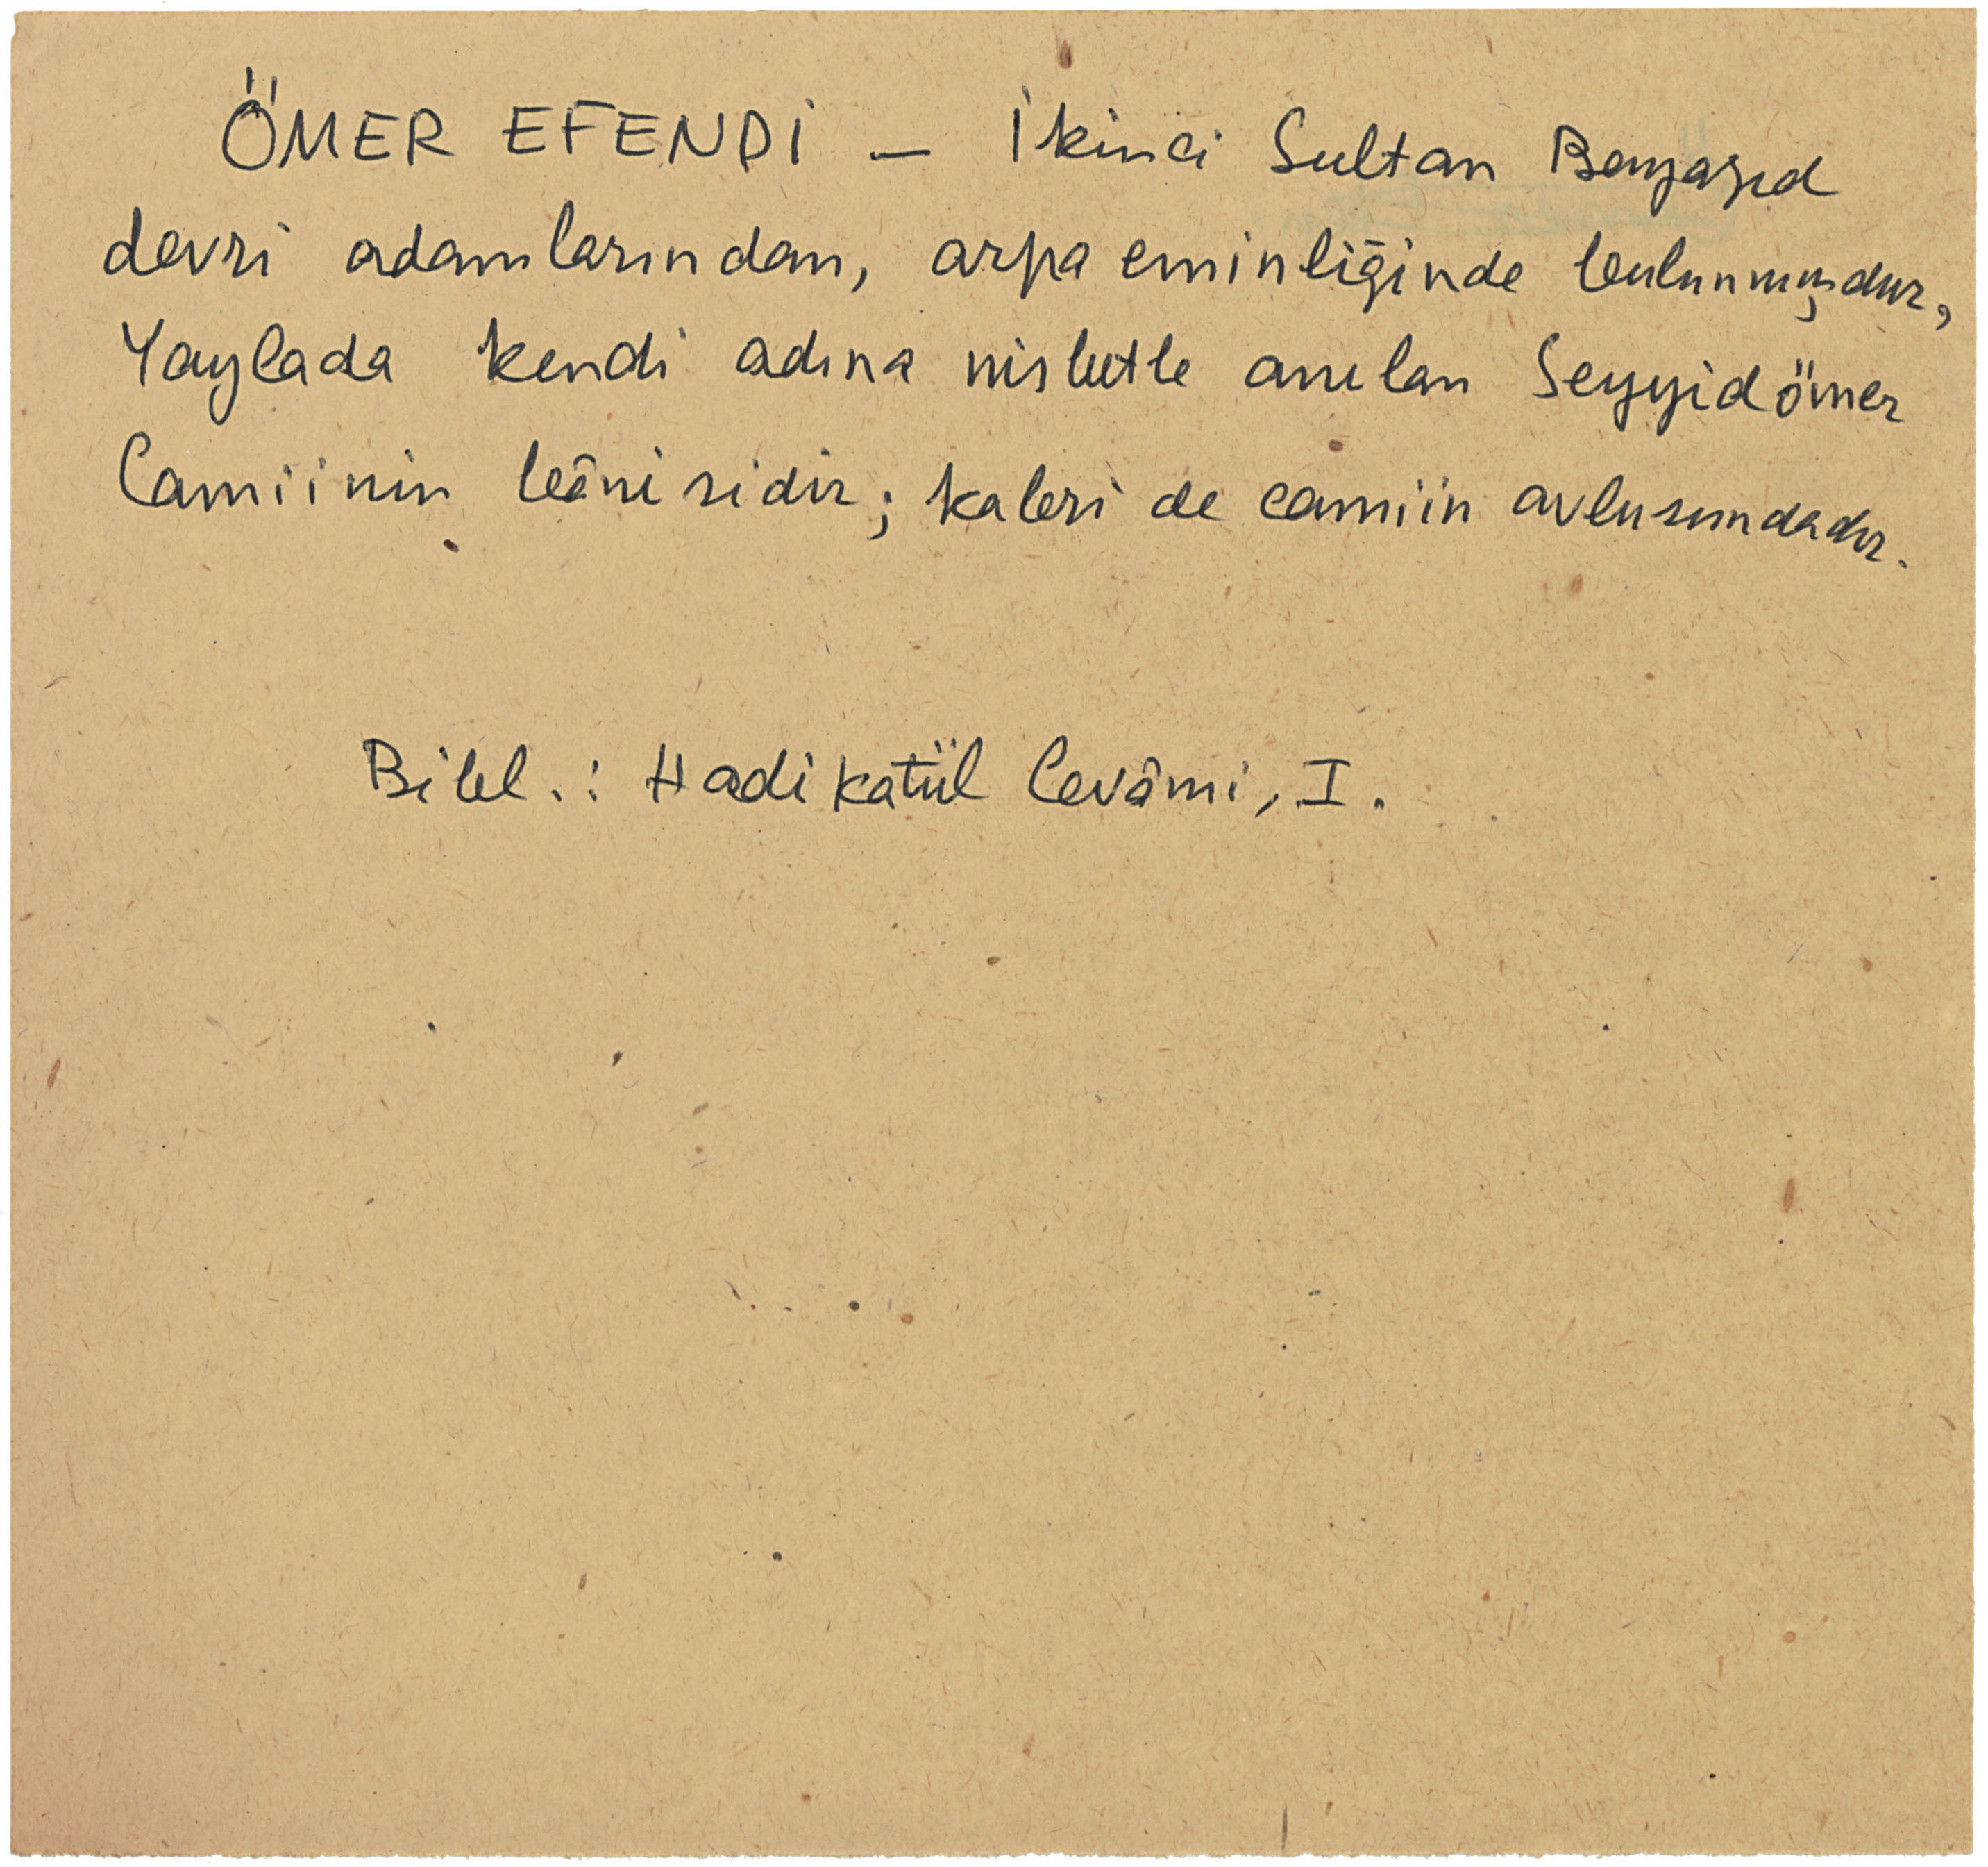 ÖMER EFENDİ — İkinci Sultan Bayazıd
devri adamlarından, arpa eminliğinde bulunmuşdur,
Yaylada kendi adına nisbetle anılan Seyyidömer
Camiinin bânisidir; kabri de camiin avlusundadır.
Bibl.: Hadikatül Cevâmi, I.